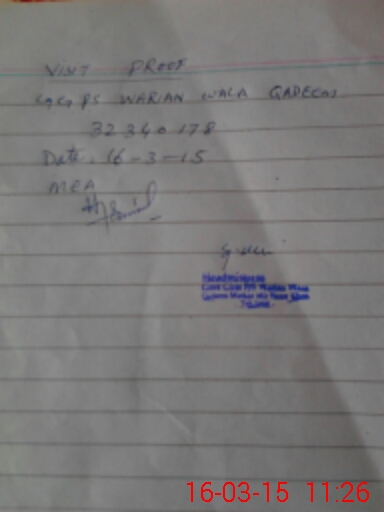 VISIT PROOF
GG PS WARIAN WALA
32340178
Date. 16-3-15
MEA
Headmistress
Govt Girls P/S Warian Wala
16-03-15 11:26